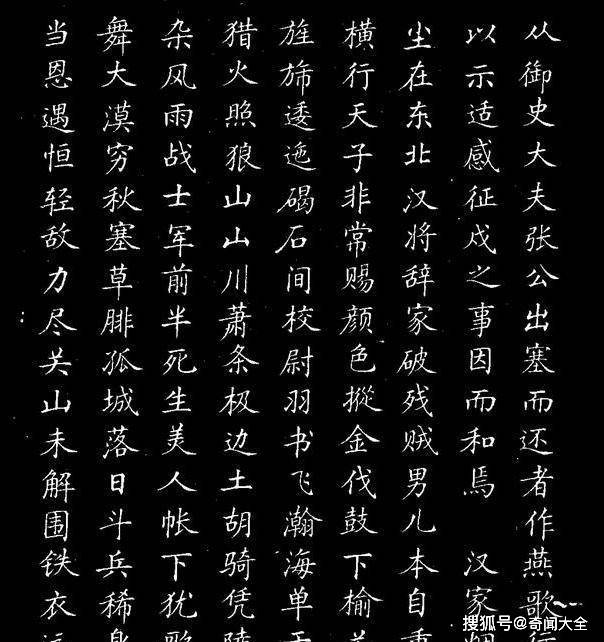 从御史大夫张公出塞而还者作燕歌
以示适感征戍之事因而和焉 汉家
尘在东北汉将辞家破残贼男儿本自
横行天子非常赐颜色摐金伐鼓下榆
旌旆逶迤碣石间校尉羽书飞瀚海单
猎火照狼山山川萧条极边土胡骑凭
杂风雨战士军前半死生美人帐下犹
舞大漠穷秋塞草腓孤城落日斗兵稀
当恩遇恒轻敌力尽关山未解围铁衣
搜狐号@奇闻大全